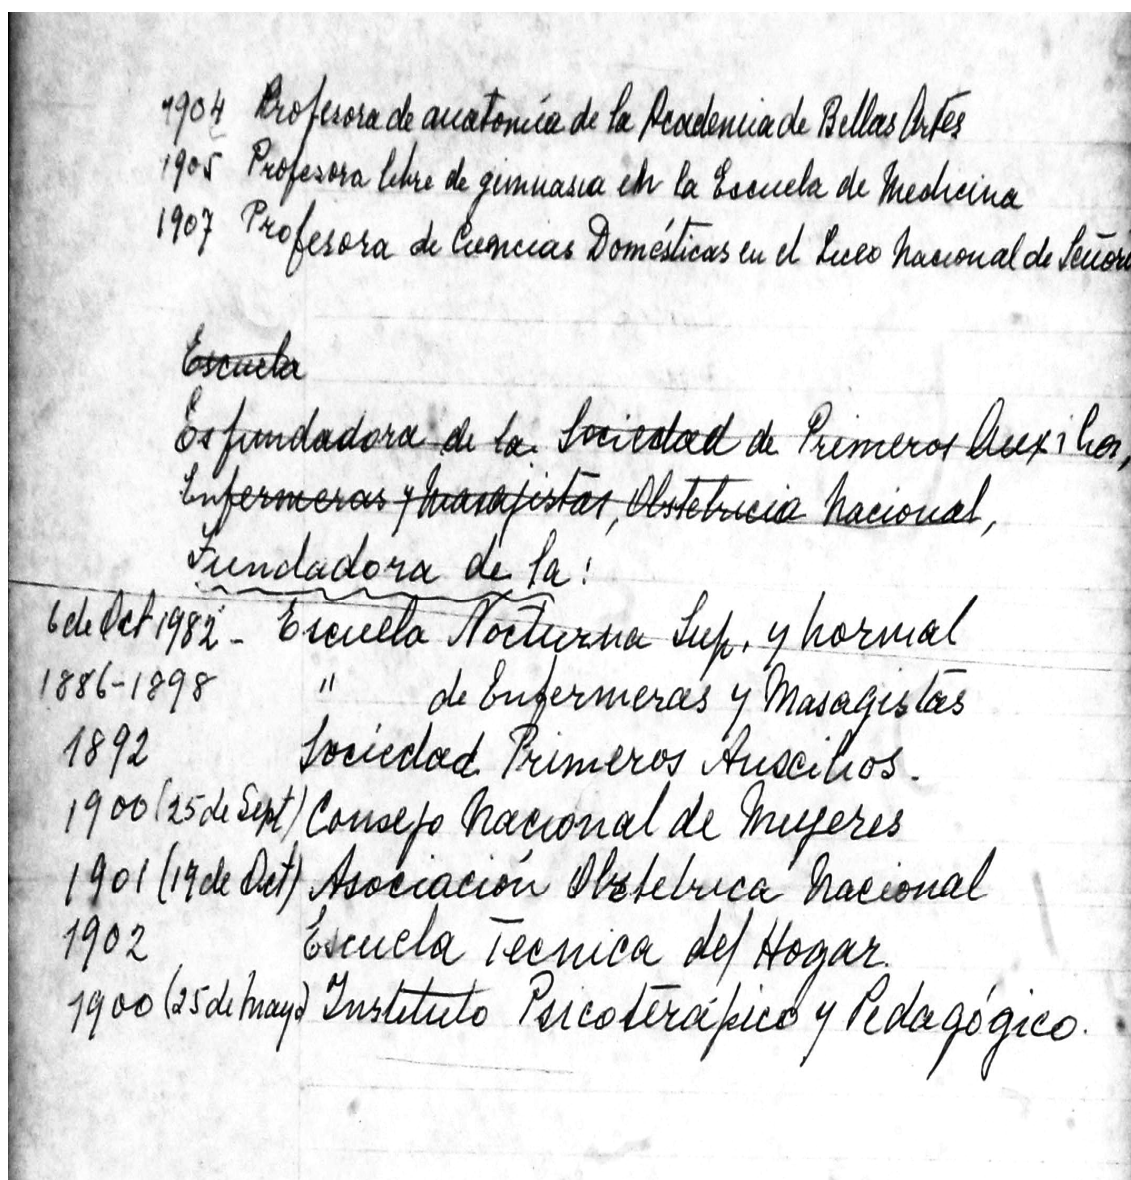 1904 Profesora de anatomía de la Academia de Bellas Artes
1905 Profesora libre de gimnasia en la Escuela de Medicina
1907 Profesora de Ciencias Domésticas en el Liceo Nacional de Señori
Escuela
Es fundadora de la Sociedad de Primeros Auxilios,
Enfermeras y Masajistas, Obstetricia Nacional,
Fundadora de la:
6 de Oct 1982 - Escuela Nocturna Sup. y Normal
1886-1898 " de Enfermeras y Masagistas
1892 Sociedad Primeros Auxcilios.
1900 (25 de Sept) Consejo Nacional de Mujeres
1901 (19 de Oct) Asociación Obstetrica Nacional
1902 Escuela Tecnica del Hogar.
1900 (25 de Mayo) Instituto Psicoterápico y Pedagógico.